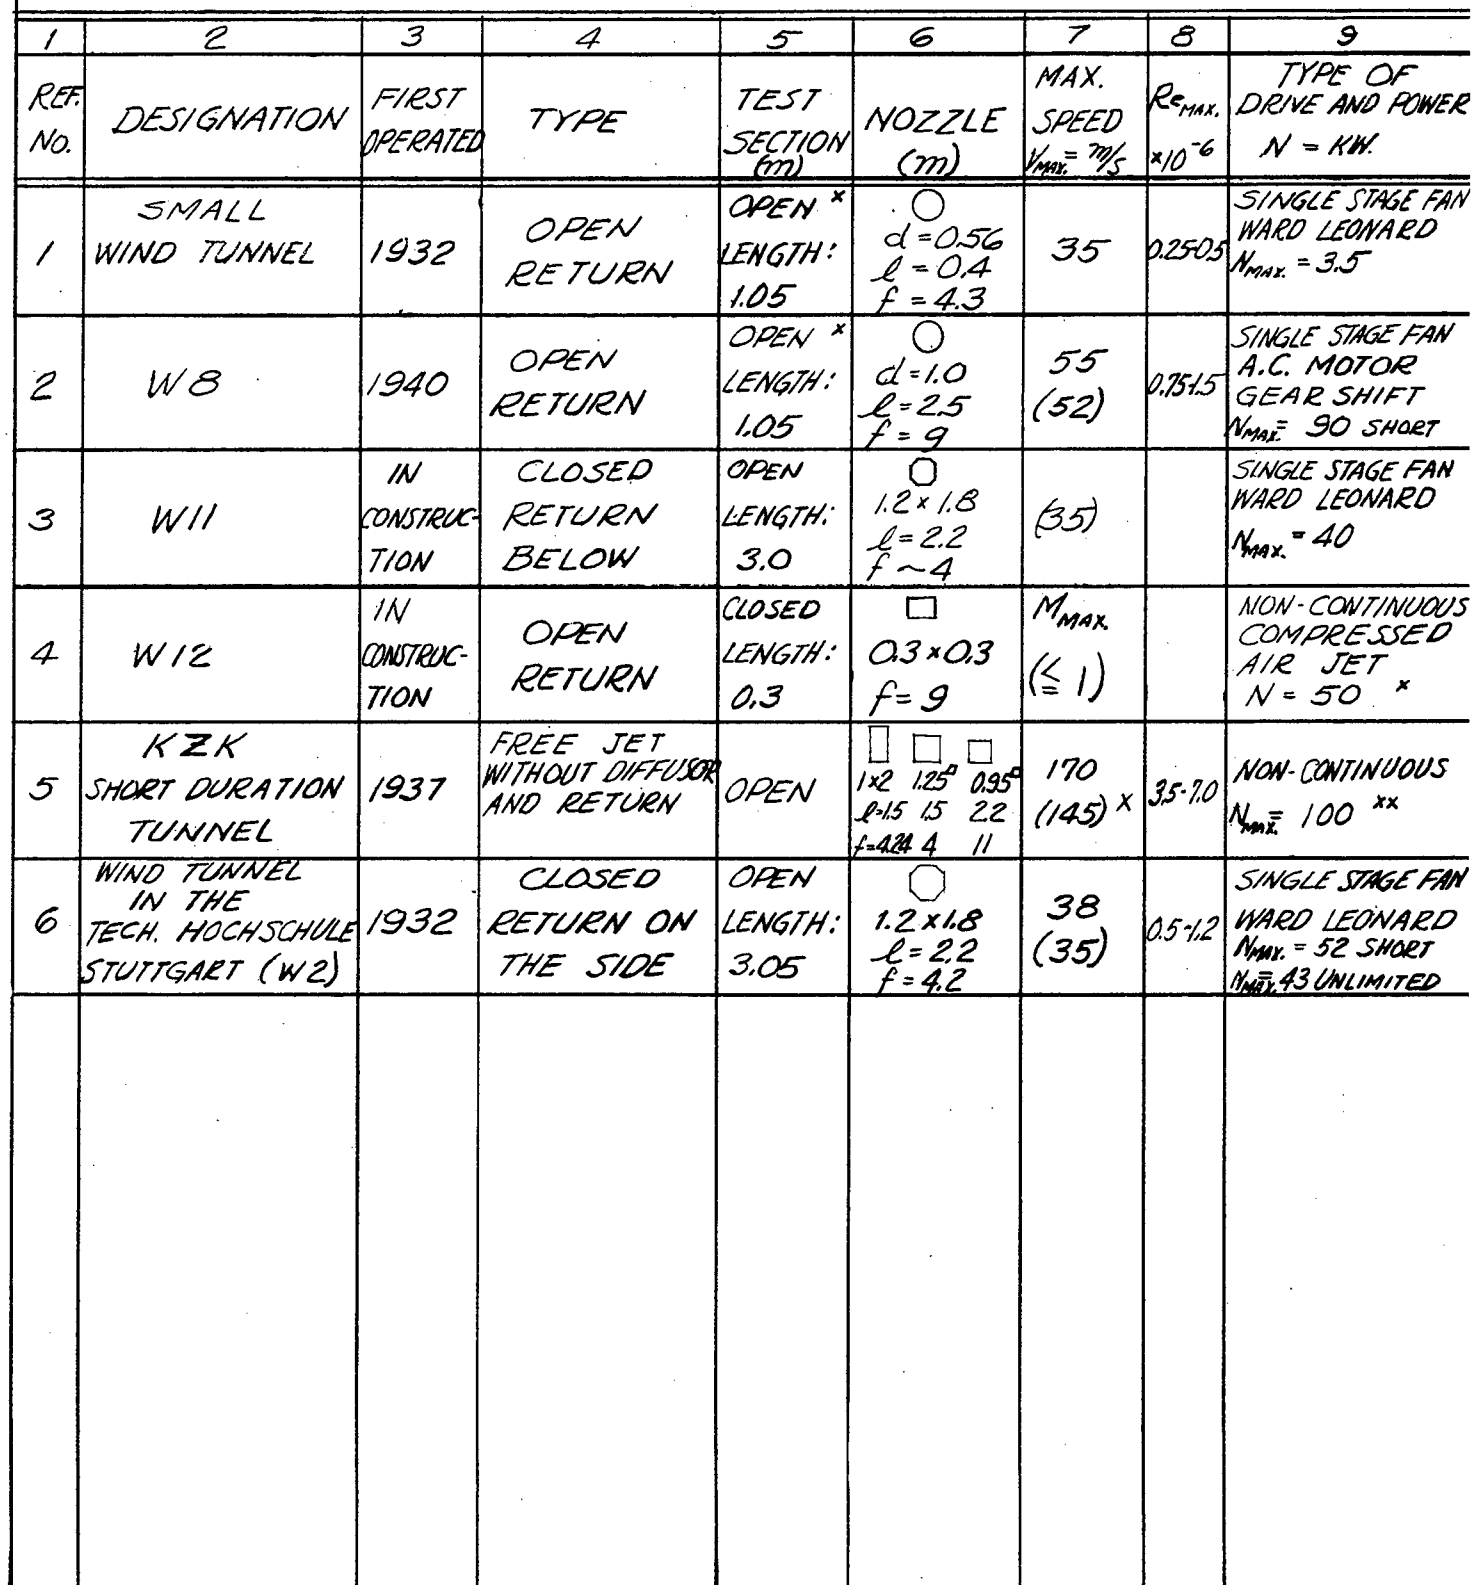 1 2 3 4 5 6 7 8 9
REF. No.
DESIGNATION
FIRST OPERATED
TYPE
TEST SECTION (m)
NOZZLE (m)
MAX. SPEED VMAX. = m/s
ReMAX. ×10⁻⁶
TYPE OF DRIVE AND POWER N = KW.
1
SMALL
WIND TUNNEL
1932
OPEN
RETURN
OPEN ˣ
LENGTH:
1.05
d = 0.56
l = 0.4
f = 4.3
35
0.25-0.5
SINGLE STAGE FAN
WARD LEONARD
NMAX. = 3.5
2
W8
1940
OPEN
RETURN
OPEN ˣ
LENGTH:
1.05
d = 1.0
l = 2.5
f = 9
55
(52)
0.75-1.5
SINGLE STAGE FAN
A.C. MOTOR
GEAR SHIFT
NMAX. = 90 SHORT
3
W11
IN
CONSTRUC-
TION
CLOSED
RETURN
BELOW
OPEN
LENGTH:
3.0
1.2 × 1.8
l = 2.2
f ~ 4
(35)
SINGLE STAGE FAN
WARD LEONARD
NMAX. = 40
4
W12
IN
CONSTRUC-
TION
OPEN
RETURN
CLOSED
LENGTH:
0.3
0.3 × 0.3
f = 9
MMAX.
(≦ 1)
NON-CONTINUOUS
COMPRESSED
AIR JET
N = 50 ˣ
5
KZK
SHORT DURATION
TUNNEL
1937
FREE JET
WITHOUT DIFFUSOR
AND RETURN
OPEN
1×2 1.25□ 0.95□
l=1.5 1.5 2.2
f=4.24 4 11
170
(145) ×
3.5-7.0
NON-CONTINUOUS
NMAX. = 100 ˣˣ
6
WIND TUNNEL
IN THE
TECH. HOCHSCHULE
STUTTGART (W2)
1932
CLOSED
RETURN ON
THE SIDE
OPEN
LENGTH:
3.05
1.2 × 1.8
l = 2.2
f = 4.2
38
(35)
0.5-1.2
SINGLE STAGE FAN
WARD LEONARD
NMAX. = 52 SHORT
NMAX. = 43 UNLIMITED